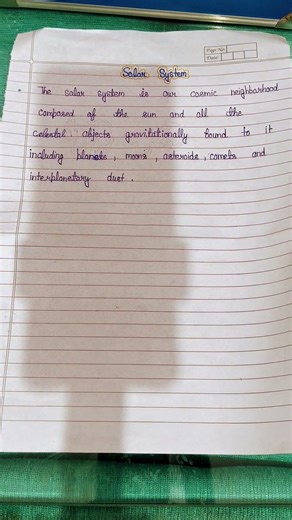 Page No.
Date:
Solar System
The Solar System is our cosmic neighborhood
Composed of the sun and all the
Celestal objects gravitationally bound to it
including planets, moons, asteroids, comets and
interplanetary dust.